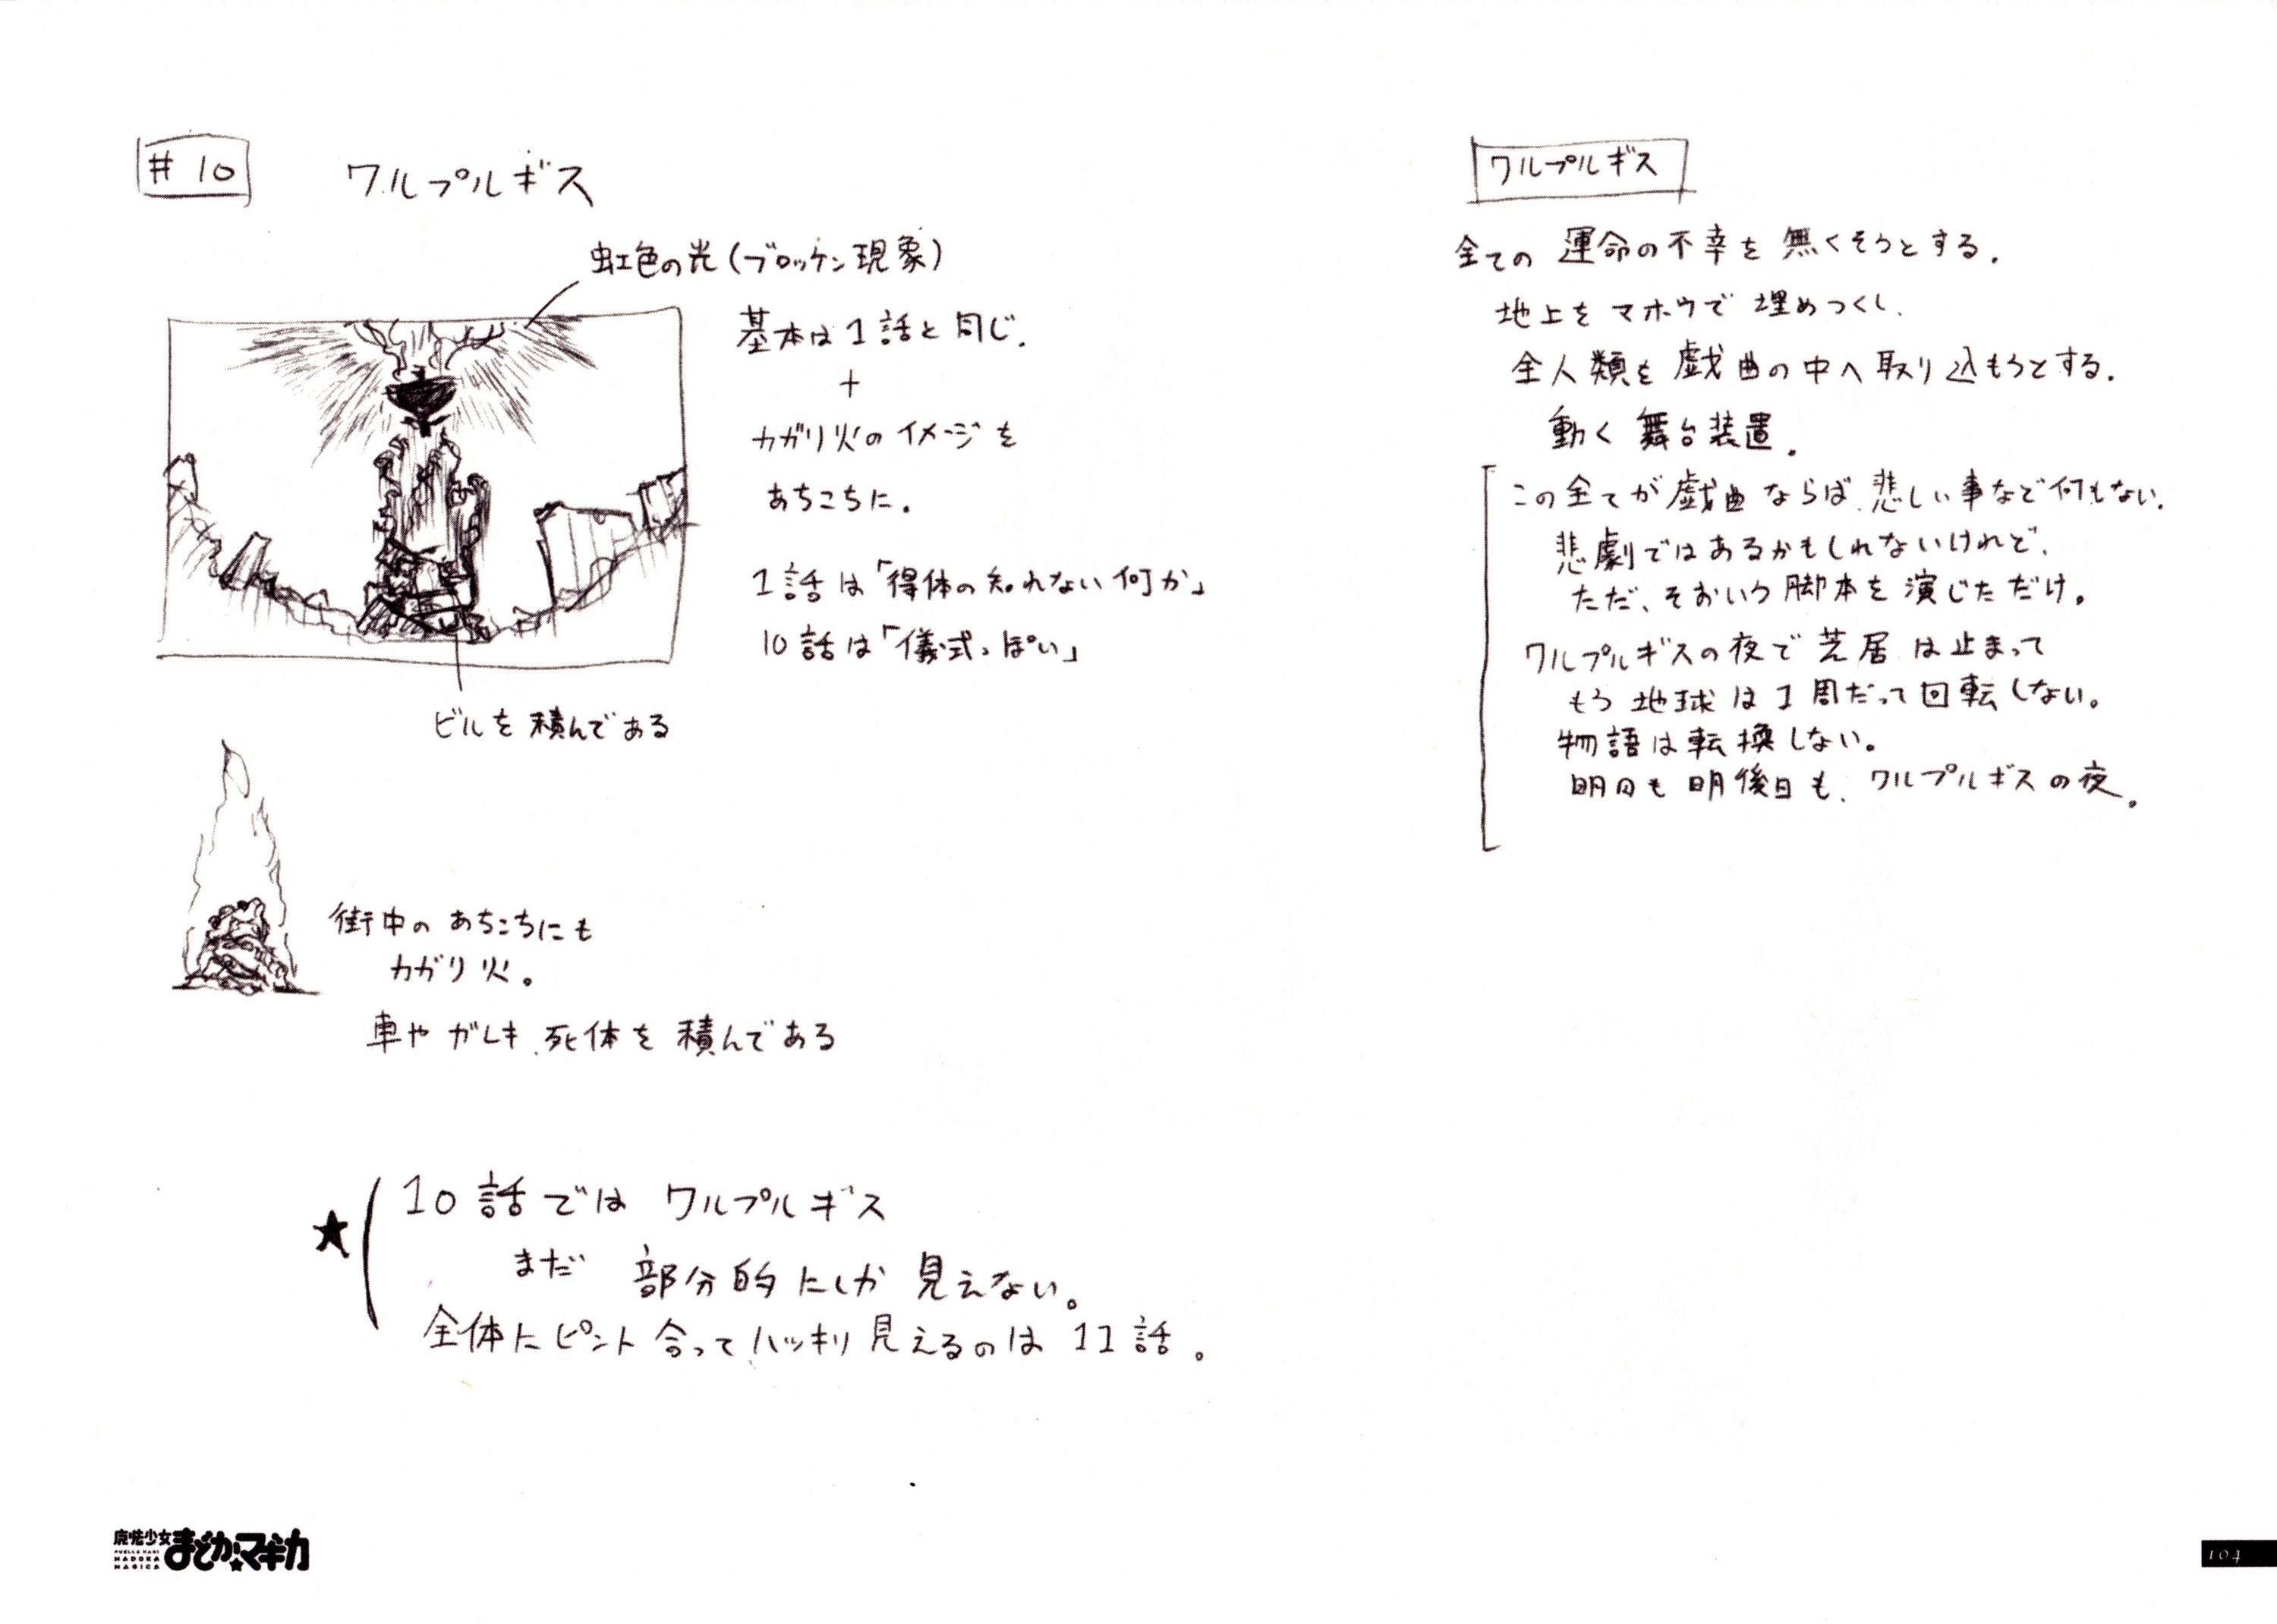 # 10
ワルプルギス
虹色の光(ブロッケン現象)
基本は1話と同じ.
+
カガリ火のイメージを
あちこちに.
1話は「得体の知れない何か」
10話は「儀式っぽい」
ビルを積んである
街中のあちこちにも
カガリ火。
車やガレキ、死体を積んである
★ 10話ではワルプルギス
まだ 部分的にしか見えない。
全体にピント合ってハッキリ見えるのは11話。
ワルプルギス
全ての運命の不幸を無くそうとする.
地上をマホウで埋めつくし、
全人類を戯曲の中へ取り込もうとする.
動く舞台装置.
この全てが戯曲ならば、悲しい事など何もない.
悲劇ではあるかもしれないけれど、
ただ、そおいう脚本を演じただけ。
ワルプルギスの夜で芝居は止まって
もう地球は1周だって回転しない。
物語は転換しない。
明日も明後日も、ワルプルギスの夜。
魔法少女
まどか★マギカ
PUELLA MAGI
MADOKA
MAGICA
104